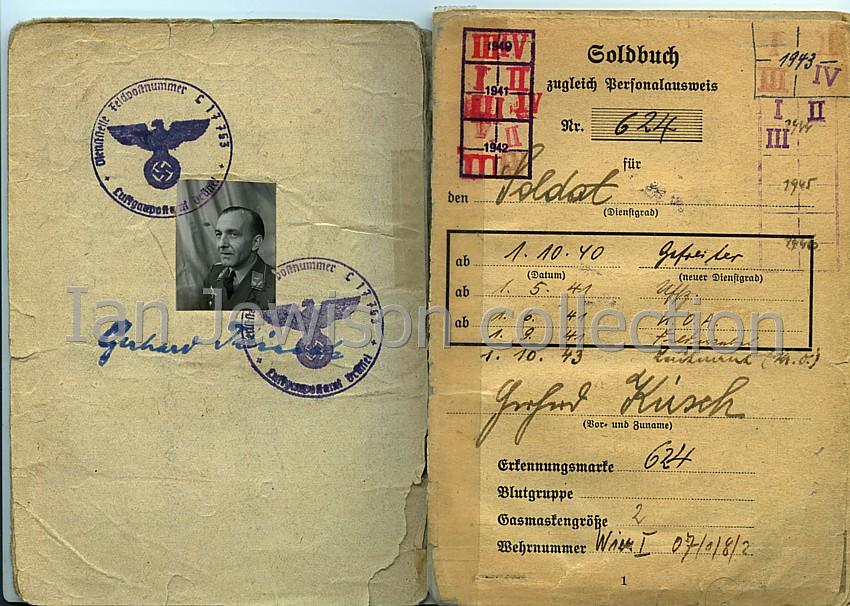 Dienststelle Feldpostnummer L 17753
Luftgaupostamt Brüssel
postnummer L 17753
Luftgaupostamt Brüssel
Gerhard
Ian Jewison collection
1940
III IV
I II
1941
III IV
I II
1942
III
Soldbuch
zugleich Personalausweis
Nr. 624
für
den Soldat
(Dienstgrad)
1943
III IV
I II
III
1945
ab 1.10.40 Gefreiter
(Datum) (neuer Dienstgrad)
ab 1.5.41 Uffz.
ab 1.6.41 K.O.A.
1.9.41
1.10.43 Leutnant (Kr.O.)
Gerhard Küsch
(Vor- und Zuname)
Erkennungsmarke 624
Blutgruppe
Gasmaskengröße 2
Wehrnummer Wien I 07/1/8/2
1